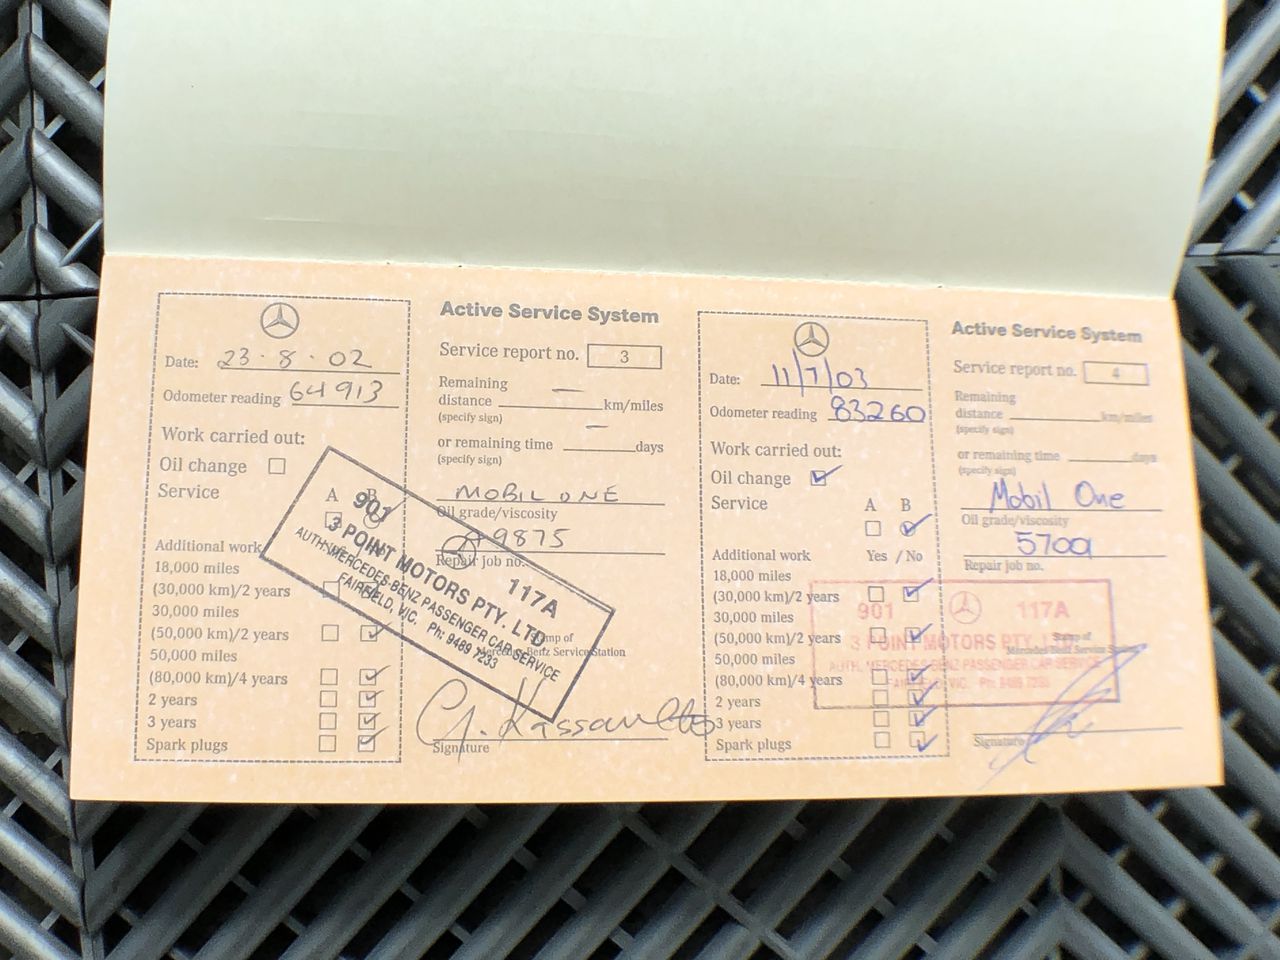 Date: 23·8·02
Odometer reading 64913
Work carried out:
Oil change
Service
A B
Additional work
18,000 miles
(30,000 km)/2 years
30,000 miles
(50,000 km)/2 years
50,000 miles
(80,000 km)/4 years
2 years
3 years
Spark plugs
Active Service System
Service report no. 3
Remaining —
distance km/miles
(specify sign)
or remaining time — days
(specify sign)
MOBIL ONE
Oil grade/viscosity
9875
Repair job no.
901 117A
3 POINT MOTORS PTY. LTD
AUTH. MERCEDES-BENZ PASSENGER CAR SERVICE
FAIRFIELD, VIC. Ph: 9489 7233
Stamp of
Mercedes-Benz Service Station
Signature
Date: 11/7/03
Odometer reading 83260
Work carried out:
Oil change
Service
A B
Additional work Yes / No
18,000 miles
(30,000 km)/2 years
30,000 miles
(50,000 km)/2 years
50,000 miles
(80,000 km)/4 years
2 years
3 years
Spark plugs
Active Service System
Service report no. 4
Remaining
distance km/miles
(specify sign)
or remaining time days
(specify sign)
Mobil One
Oil grade/viscosity
5700
Repair job no.
901 117A
3 POINT MOTORS PTY. LTD
AUTH. MERCEDES-BENZ PASSENGER CAR SERVICE
FAIRFIELD, VIC. Ph: 9489 7233
Stamp of
Mercedes-Benz Service Station
Signature